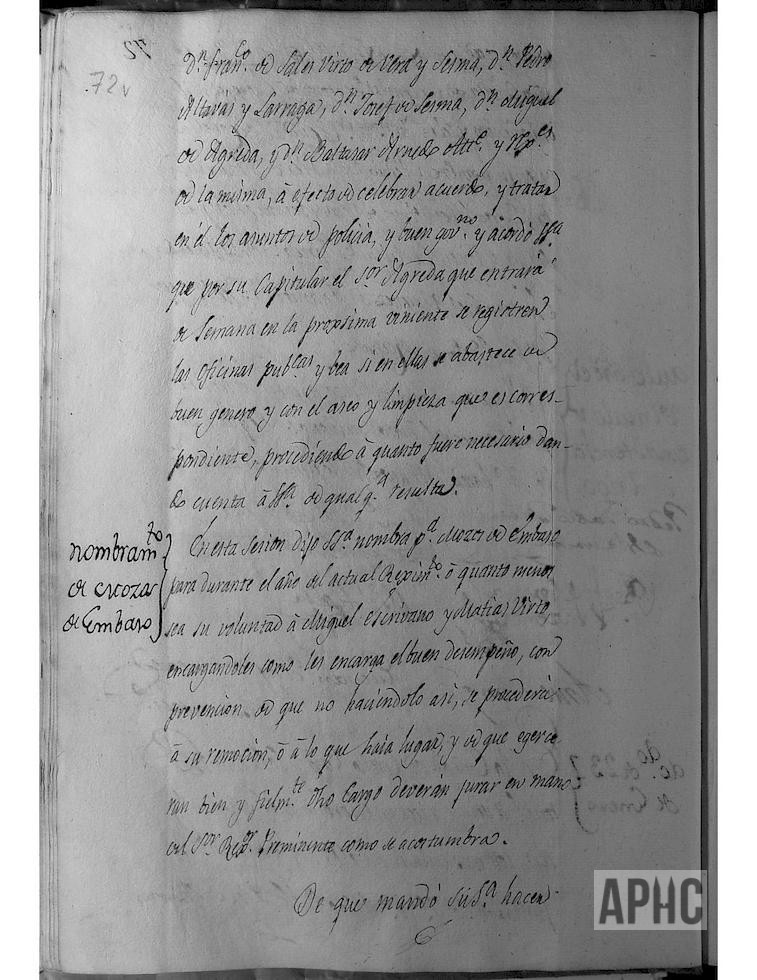 72v
Dn. Franco. de Sales Virto de Vera y Sesma, dn. Pedro
Altarás y Larraga, dn. Josef de Sesma, dn. Miguel
de Agreda, y dn. Baltasar Arnedo Attc. y Rxes.
de la misma, á efecto de celebrar acuerdo, y tratar
en él los asuntos de policia, y buen govno. y acordó SSa.
que por su Capitular el Sor. Agreda que entrará
de semana en la proxsima viniente se registren
las oficinas pubcas y bea si en ellas se abastece de
buen genero y con el aseo y limpieza que es corres-
pondiente, procediendo á quanto fuere necesario dan-
do cuenta á SSa. de qualqa. resulta.
nombramto.
de mozas
de Embaso
En esta sesion dijo SSa. nombra pa. Mozos de Embaso
para durante el año del actual Reximto. ó quanto menos
sea su voluntad á Miguel escrivano y Matias Virto,
encargandoles como les encarga el buen desempeño, con
prevencion de que no haciendolo asi, se procederá
á su remocion, ó á lo que haia lugar, y de que egerce
ran bien y fielmte. dho Cargo deverán jurar en mano
del Sor. Rexor. Preminente como se acostumbra.
De que mandó su Sa. hacer
APHC